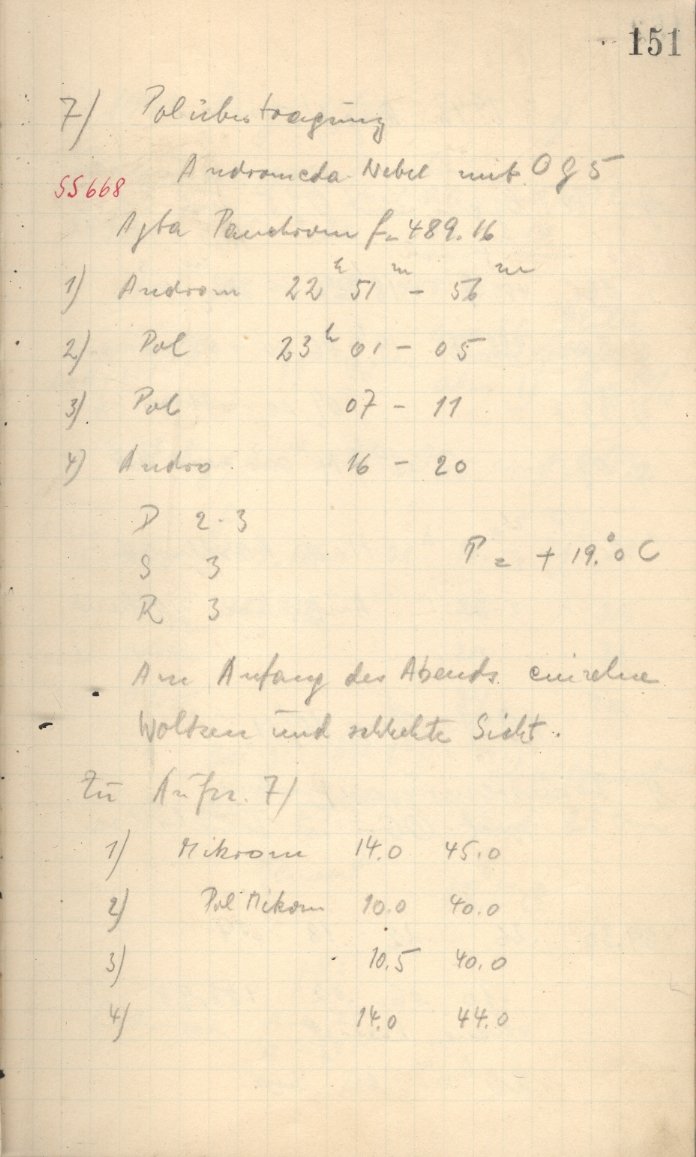 151
7) Polübertragung
Andromeda-Nebel mit OG5
SS668
Agfa Panchrom f= 489.16
1) Androm 22h 51m - 56m
2) Pol 23h 01 - 05
3) Pol 07 - 11
4) Andro. 16 - 20
D 2-3
S 3
T = + 19.°0 C
R 3
Am Anfang des Abends einzelne
Wolken und schlechte Sicht.
Zu Aufn. 7)
1) Mikrom 14.0 45.0
2) Pol Mikom 10.0 40.0
3) 10.5 40.0
4) 14.0 44.0